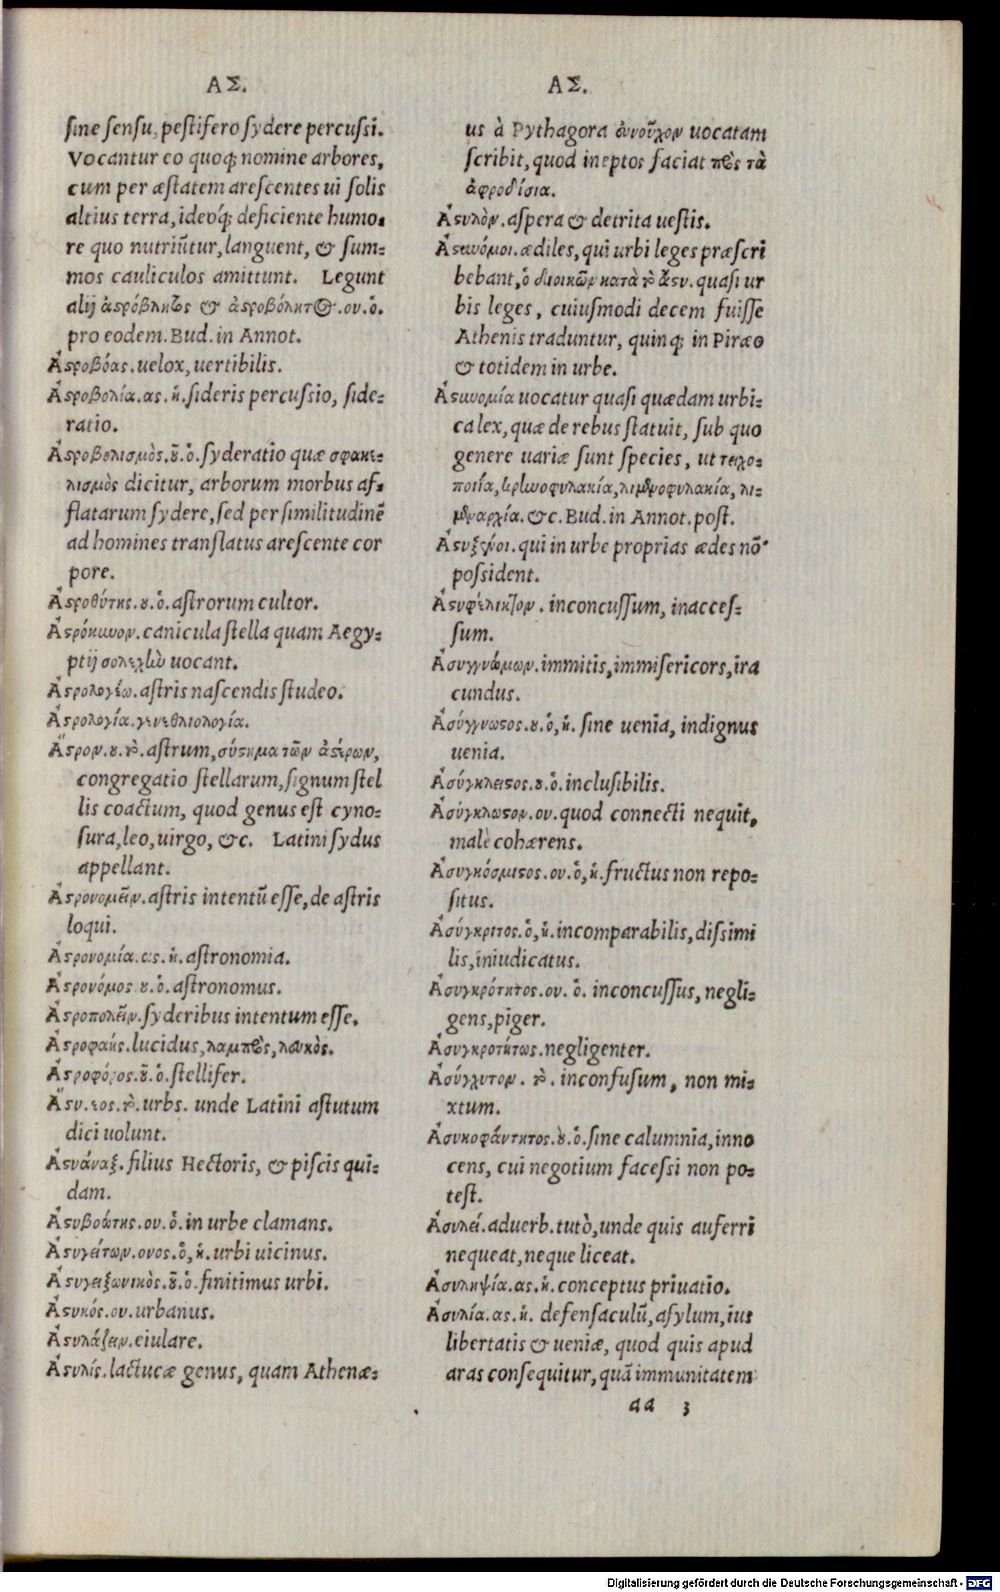 ΑΣ.
sine sensu, pestifero sydere percussi.
Vocantur eo quoq; nomine arbores,
cum per æstatem arescentes ui solis
altius terra, ideóq; deficiente humo-
re quo nutriũtur, languent, & sum-
mos cauliculos amittunt. Legunt
alij ἀςρόβλητος & ἀςροβόλητος. ου. ὁ.
pro eodem. Bud. in Annot.
Ἀςροβόας. uelox, uertibilis.
Ἀςροβολία. ας. ἡ. sideris percussio, side-
ratio.
Ἀςροβολισμὸς. ȣ̃. ὁ. syderatio quæ σφακε-
λισμὸς dicitur, arborum morbus af-
flatarum sydere, sed per similitudinẽ
ad homines translatus arescente cor
pore.
Ἀςροθύτης. ȣ. ὁ. astrorum cultor.
Ἀςρόκυνον. canicula stella quam Aegy-
ptij σολεχὴν uocant.
Ἀςρολογέω. astris nascendis studeo.
Ἀςρολογία. γενεθλιολογία.
Ἄςρον. ȣ. τὸ. astrum, σύςημα τῶν ἀςέρων,
congregatio stellarum, signum stel
lis coactum, quod genus est cyno-
sura, leo, uirgo, &c. Latini sydus
appellant.
Ἀςρονομεῖν. astris intentũ esse, de astris
loqui.
Ἀςρονομία. ας. ἡ. astronomia.
Ἀςρονόμος. ȣ. ὁ. astronomus.
Ἀςροπολεῖν. syderibus intentum esse.
Ἀςροφαής. lucidus, λαμπρὸς, λευκὸς.
Ἀςροφόρος. ȣ̃. ὁ. stellifer.
Ἄςυ. εος. τὸ. urbs. unde Latini astutum
dici uolunt.
Ἀςυάναξ. filius Hectoris, & piscis qui-
dam.
Ἀςυβοώτης. ου. ὁ. in urbe clamans.
Ἀςυγείτων. ονος. ὁ, ἡ. urbi uicinus.
Ἀςυγειτονικὸς. ȣ̃. ὁ. finitimus urbi.
Ἀςυκός. ου. urbanus.
Ἀςυλάζειν. eiulare.
Ἀςυλίς. lactucæ genus, quam Athenæ-
ΑΣ.
us à Pythagora εὐνοῦχον uocatam
scribit, quod ineptos faciat πρὸς τὰ
ἀφροδίσια.
Ἀςυλὸν. aspera & detrita uestis.
Ἀςυνόμοι. ædiles, qui urbi leges præscri
bebant, ὁ διοικῶν κατὰ τὸ ἄςυ. quasi ur
bis leges, cuiusmodi decem fuisse
Athenis traduntur, quinq; in Piræo
& totidem in urbe.
Ἀςυνομία uocatur quasi quædam urbi-
ca lex, quæ de rebus statuit, sub quo
genere uariæ sunt species, ut τειχο-
ποιΐα, κρηνοφυλακία, λιμενοφυλακία, λι-
μεναρχία. &c. Bud. in Annot. post.
Ἀςυξένοι. qui in urbe proprias ædes nõ
possident.
Ἀςυφέλικτον. inconcussum, inacces-
sum.
Ἀσυγγνώμων. immitis, immisericors, ira
cundus.
Ἀσύγγνωςος. ȣ. ὁ, ἡ. sine uenia, indignus
uenia.
Ἀσύγκλειςος. ȣ. ὁ. inclusibilis.
Ἀσύγκλωςον. ου. quod connecti nequit,
malè cohærens.
Ἀσυγκόσμιςος. ου. ὁ, ἡ. fructus non repo-
situs.
Ἀσύγκριτος. ὁ, ἡ. incomparabilis, dissimi
lis, iniudicatus.
Ἀσυγκρότητος. ου. ὁ. inconcussus, negli-
gens, piger.
Ἀσυγκροτήτως. negligenter.
Ἀσύγχυτον. τὸ. inconfusum, non mi-
xtum.
Ἀσυκοφάντητος. ȣ. ὁ. sine calumnia, inno
cens, cui negotium facessi non po-
test.
Ἀσυλεί. aduerb. tutò, unde quis auferri
nequeat, neque liceat.
Ἀσυληψία. ας. ἡ. conceptus priuatio.
Ἀσυλία. ας. ἡ. defensaculũ, asylum, ius
libertatis & ueniæ, quod quis apud
aras consequitur, quã immunitatem
aa 3
Digitalisierung gefördert durch die Deutsche Forschungsgemeinschaft - DFG